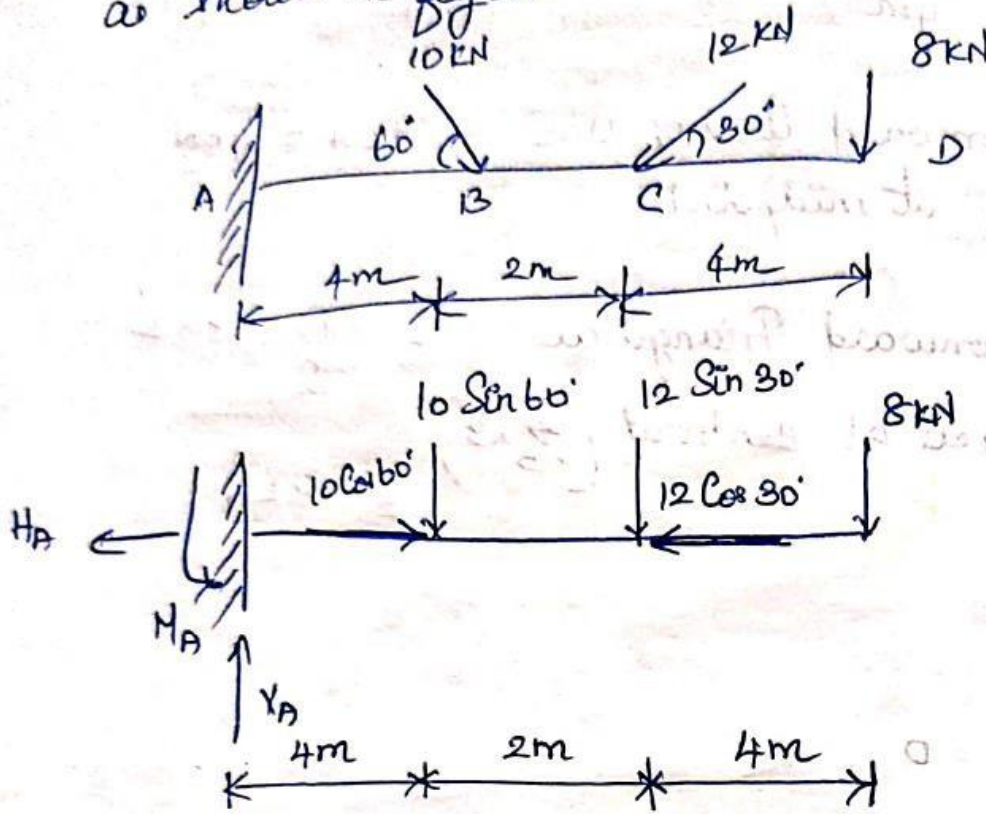 as shown
10KN 12KN 8KN
60° 30°
A B C D
4m 2m 4m
10 Sin60° 12 Sin 30° 8KN
10Cos60° 12 Cos 30°
HA
MA
VA
4m 2m 4m